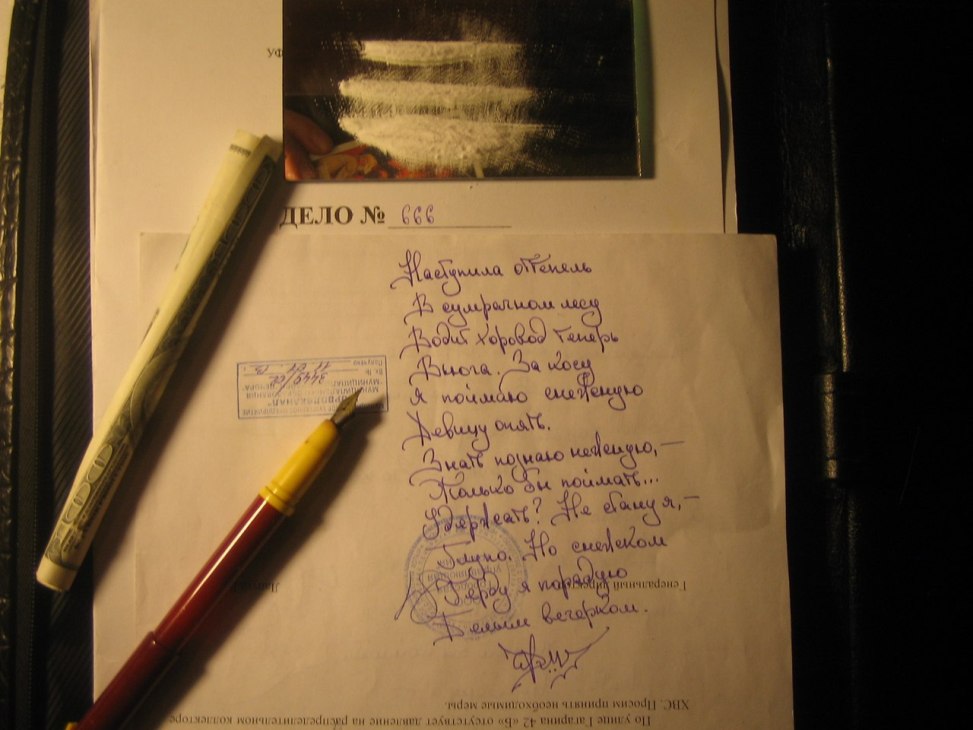 УФ
ДЕЛО № 666
Наступила оттепель
В сумрачном лесу
Водит хоровод теперь
Вьюга. За косу
Я поймаю снежную
Девицу опять.
Знать познаю нежную,—
Только бы поймать...
Удержать? Не стану я,—
Глупо. Но снежком
Герду я порадую
Белым вечерком.
Генеральный директор
ХВС. Просим принять необходимые меры.
По улице Гагарина 42 «Б» отсутствует давление на распределительном коллекторе